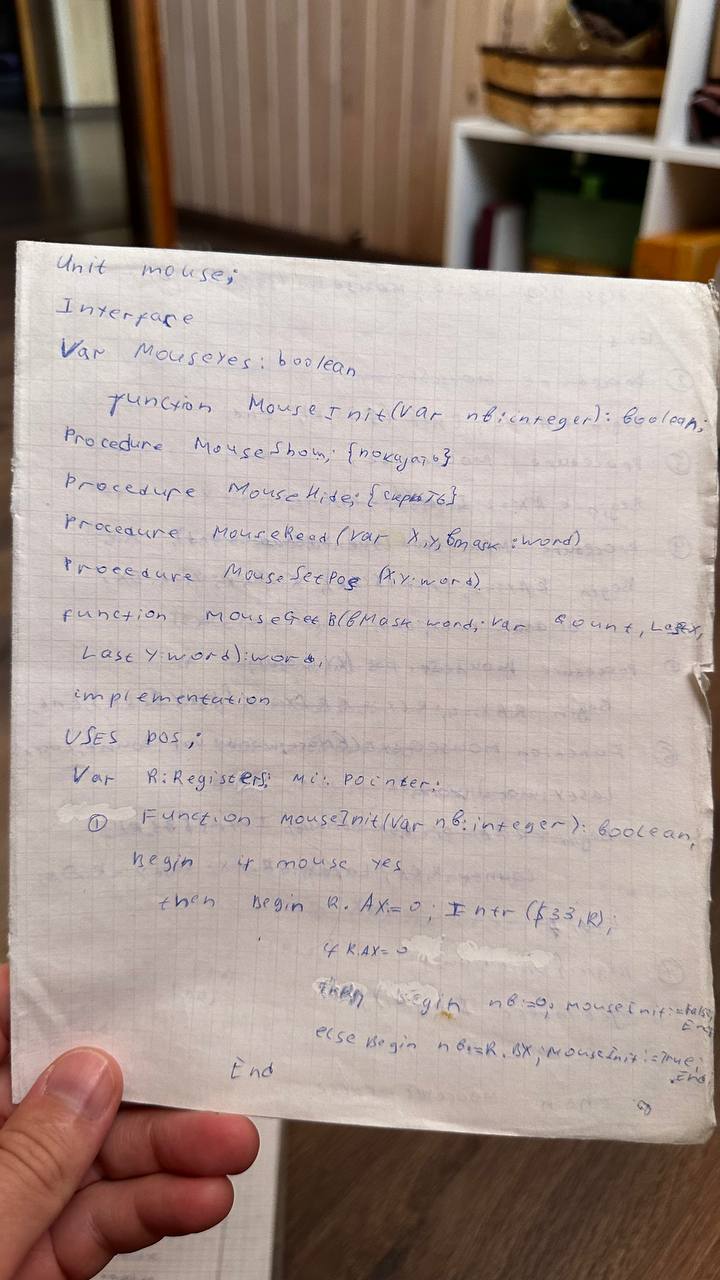 Unit mouse;
Interface
Var MouseYes: boolean
function MouseInit(var nb:integer): boolean;
Procedure MouseShow; {показать}
Procedure MouseHide; {скрыть}
Procedure MouseRead (var X,Y,bmask:word)
Procedure MouseSetPos (X,Y:word)
function MouseGetB(bMask:word; var count, LastX,
Last Y:word):word;
implementation
USES DOS;
Var R:Registers; Mi: pointer;
① Function mouseInit(var nb:integer): boolean;
Begin if mouse yes
then Begin R. AX:=0; Intr ($33,R);
if R.AX=0
then begin nb:=0; mouseInit:=false;
End
else Begin nb:=R.BX; mouseInit:=True;
End
End